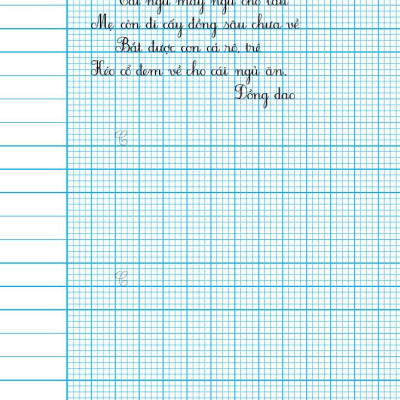 Cái ngủ mày ngủ cho lâu
Mẹ còn đi cấy đồng sâu chưa về
Bắt được con cá rô, trê
Kéo cổ đem về cho cái ngủ ăn.
Đồng dao
C
C